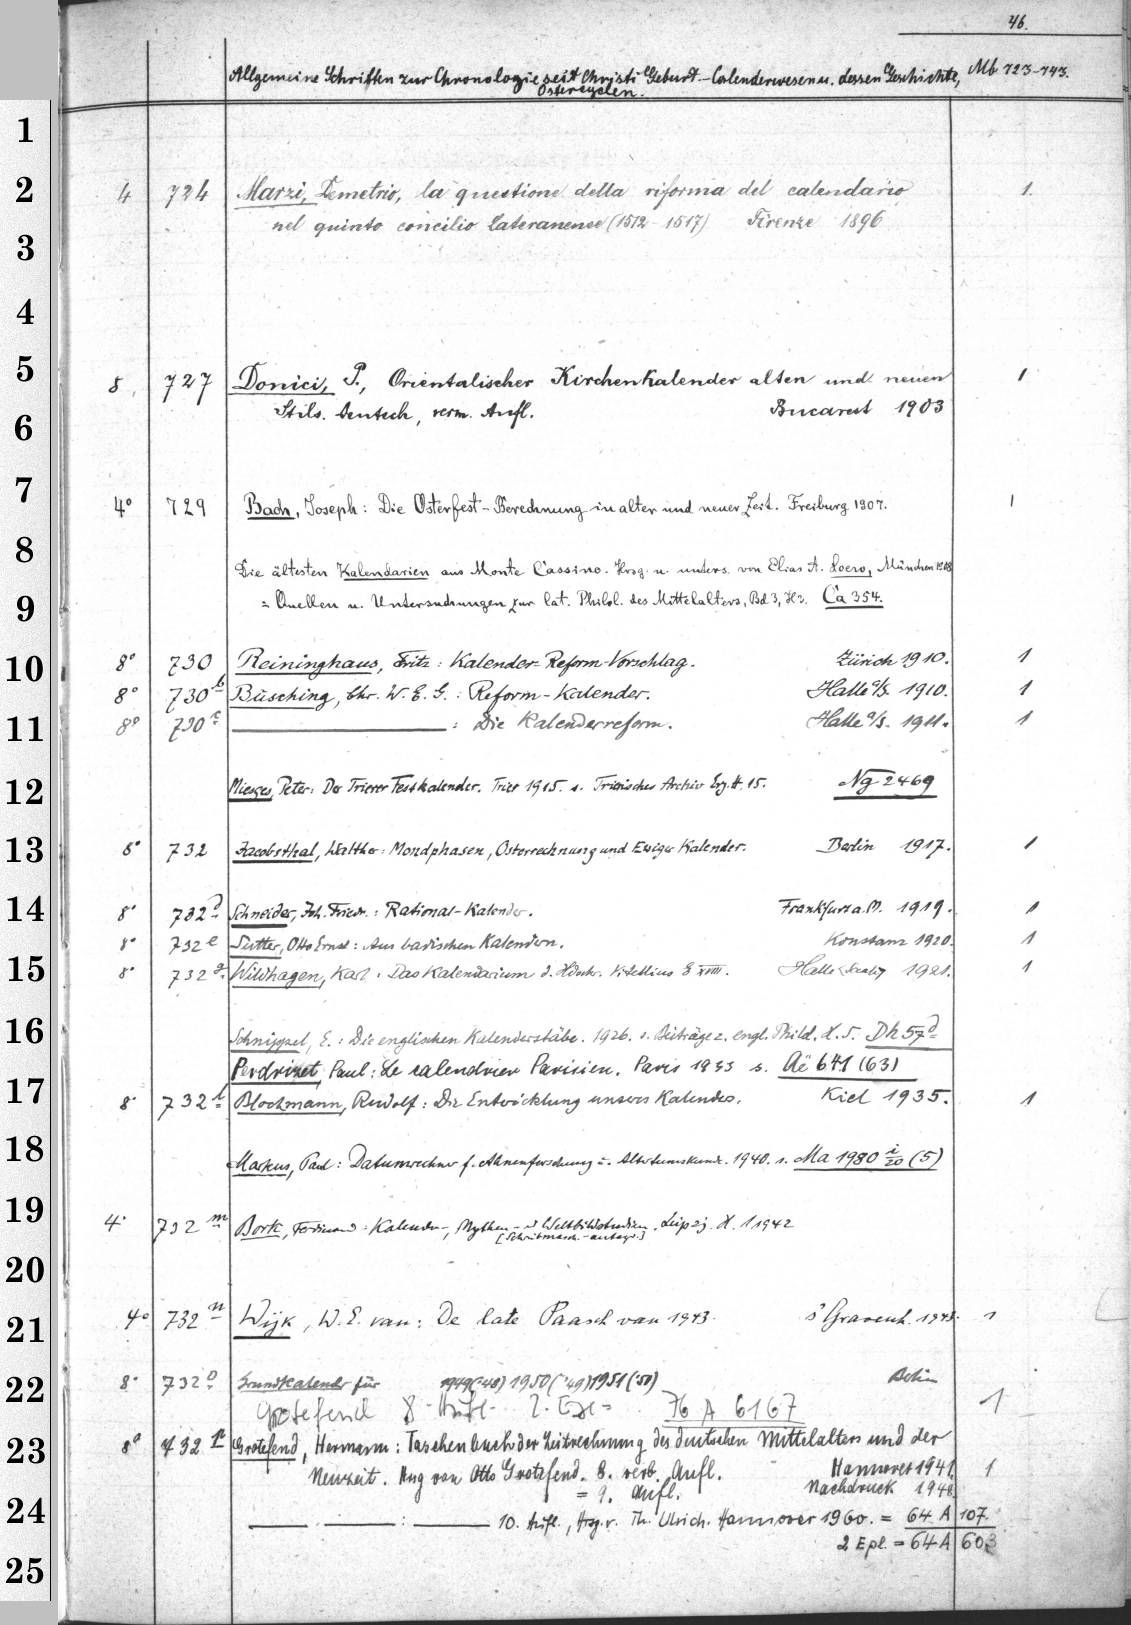 46.
Allgemeine Schriften zur Chronologie seit Christi Geburt. – Calenderwesen u. dessen Geschichte, Mb 723-743.
Ostercyclen.
1
2 4 724 Marzi, Demetrio, la questione della riforma del calendario 1.
nel quinto concilio lateranense (1512-1517) Firenze 1896
3
4
5 8. 727 Donici, P., Orientalischer Kirchenkalender alten und neuen 1
6 Stils. Deutsch, verm. Aufl. Bucarest 1903
7 4° 729 Bach, Joseph: Die Osterfest-Berechnung in alter und neuer Zeit. Freiburg 1907. 1
8 Die ältesten Kalendarien aus Monte Cassino. Hrsg. u. unters. von Elias A. Loew, München 1908
9 = Quellen u. Untersuchungen zur lat. Philol. des Mittelalters, Bd 3, H 3. Ca 354.
10 8° 730 Reininghaus, Fritz: Kalender-Reform-Vorschlag. Zürich 1910. 1
8° 730 b Büsching, Chr. W. E. G.: Reform-Kalender. Halle a/S. 1910. 1
11 8° 730 c : Die Kalenderreform. Halle a/S. 1911. 1
12 Miesges, Peter: Der Trierer Festkalender. Trier 1915. s. Trierisches Archiv Erg. H. 15. Ng 2469
13 8° 732 Jacobsthal, Walther: Mondphasen, Osterrechnung und Ewiger Kalender. Berlin 1917. 1
14 8° 732 d Schneider, Joh. Friedr.: Rational-Kalender. Frankfurt a. M. 1919. 1
8° 732 e Sutter, Otto Ernst: Aus badischen Kalendern. Konstanz 1920. 1
15 8° 732 g Wildhagen, Karl: Das Kalendarium d. Hdschr. Vitellius E XVIII. Halle 1921. 1
16 Schnippel, E.: Die englischen Kalenderstäbe. 1926. s. Beiträge z. engl. Philol. H. 5. Dh 57 d
Perdrizet, Paul: Le calendrier Parisien. Paris 1933 s. Aë 641 (63)
17 8° 732 l Blochmann, Rudolf: Die Entwicklung unseres Kalenders. Kiel 1935. 1
18 Markus, Paul: Datumrechner f. Ahnenforschung u. Altertumskunde. 1940. s. Ma 1980 i/20 (5)
19 4° 732 m Bork, Ferdinand: Kalender-, Mythen- u. Weltbildstudien. Leipzig. H. 1 1942
[Schreibmasch.-autogr.]
20
21 4° 732 n Wijk, W. E. van: De late Paasch van 1943. s'Gravenh. 1943. 1
22 8° 732 o Grundkalender für 1949('48) 1950('49) 1951('50) Berlin
Grotefend 8. Aufl. 2. Ex = 76 A 6167 1
23 8° 732 p Grotefend, Hermann: Taschenbuch der Zeitrechnung des deutschen Mittelalters und der
Neuzeit. Hrsg von Otto Grotefend. 8. verb. Aufl. Hannover 1941. 1
= 9. Aufl. Nachdruck 1948.
24 : 10. Aufl., Hrsg. v. Th. Ulrich. Hannover 1960. = 64 A 107.
2 Epl. = 64 A 603
25